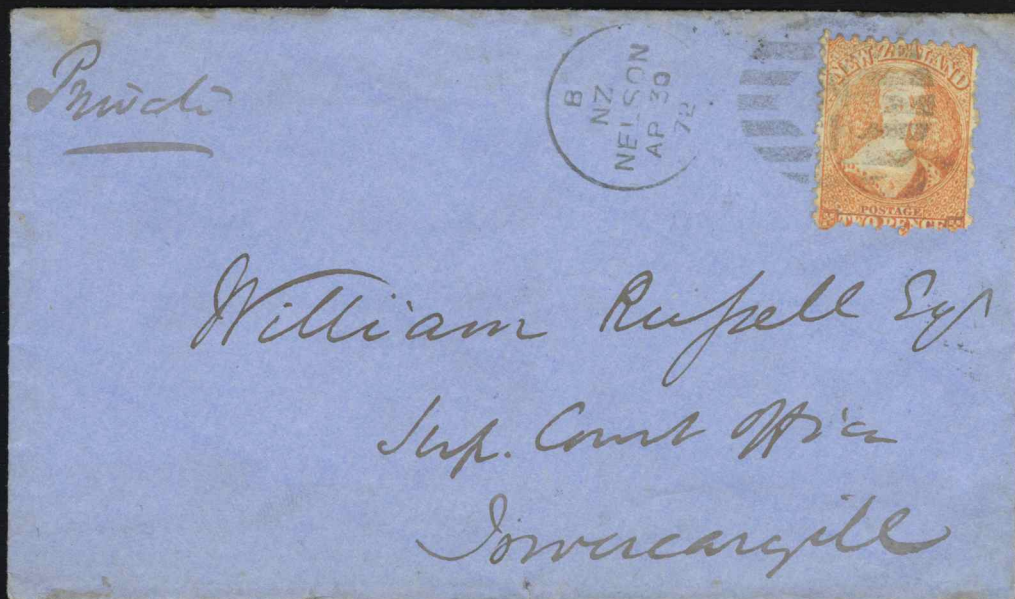 Private
B
NZ
NELSON
AP 30
72
NEW ZEALAND
POSTAGE
TWO PENCE
William Russell Esqr
Sup. Court Office
Invercargill